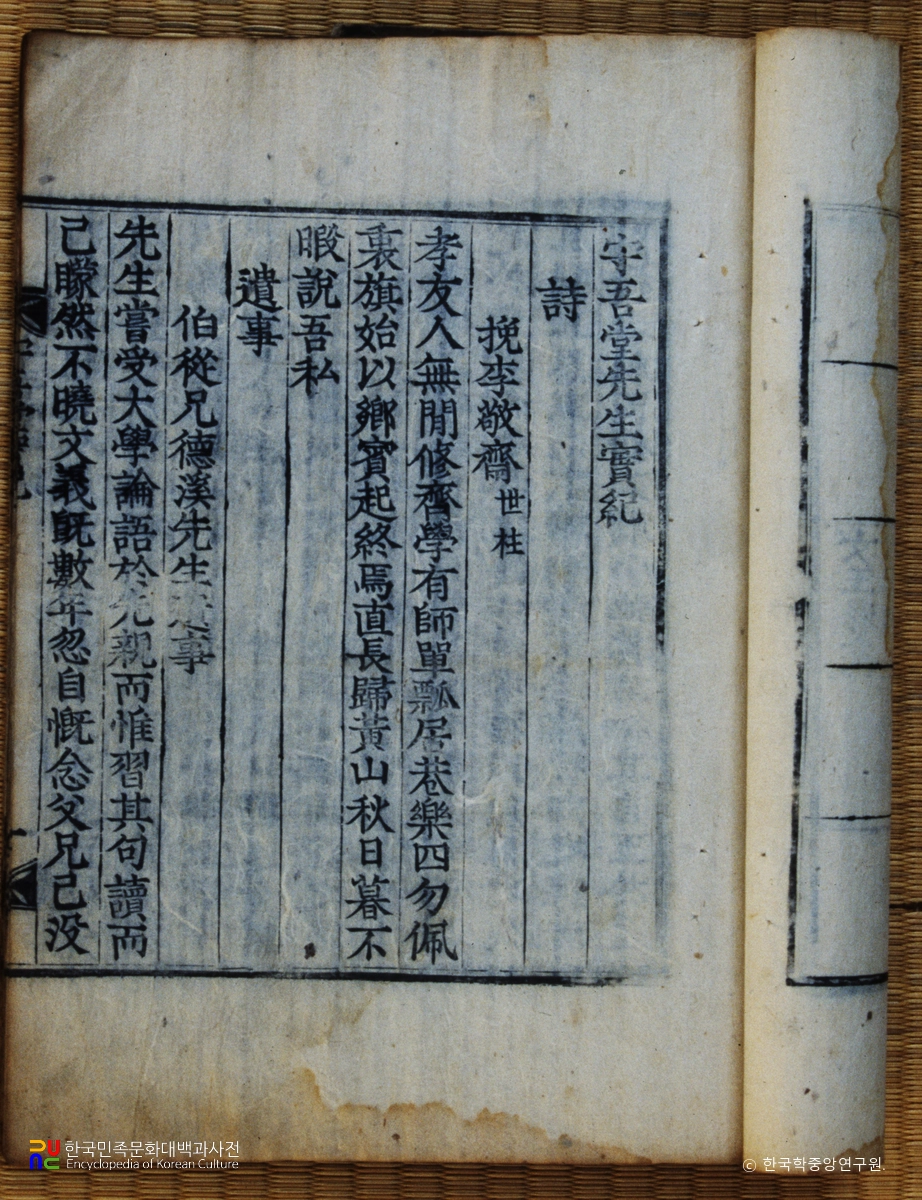 守吾堂先生實紀
詩
挽李敬齋世柱
孝友人無間修齊學有師單瓢居巷樂四勿佩
裏旗始以鄉賓起終焉直長歸黃山秋日暮不
暇說吾私
遺事
伯從兄德溪先生遺事
先生嘗受大學論語於先親而惟習其句讀而
己矇然不曉文義旣數年忽自慨念父兄己没
한국민족문화대백과사전
Encyclopedia of Korean Culture
© 한국학중앙연구원.